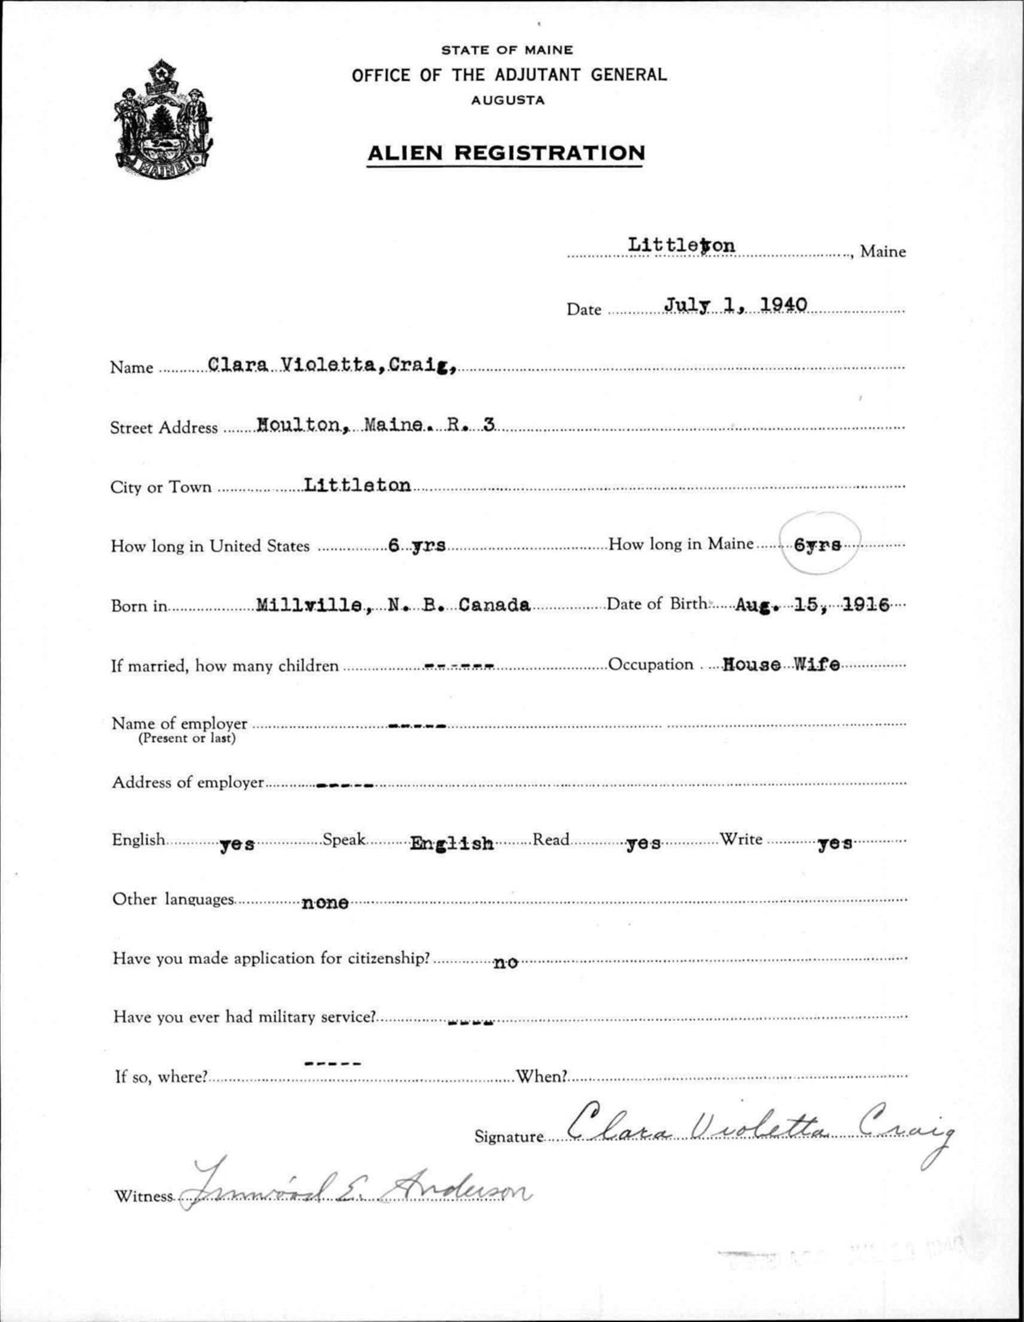 STATE OF MAINE
OFFICE OF THE ADJUTANT GENERAL
AUGUSTA
ALIEN REGISTRATION
MAINE
Littleton, Maine
Date July 1, 1940
Name Clara Violetta, Craig,
Street Address Houlton, Maine. R. 3
City or Town Littleton
How long in United States 6 yrs How long in Maine 6yrs
Born in Millville, N. B. Canada Date of Birth Aug. 15, 1916
If married, how many children ------ Occupation House Wife
Name of employer -----
(Present or last)
Address of employer -----
English yes Speak English Read yes Write yes
Other languages none
Have you made application for citizenship? no
Have you ever had military service? ----
If so, where? ----- When?
Signature Clara Violetta Craig
Witness E. Anderson